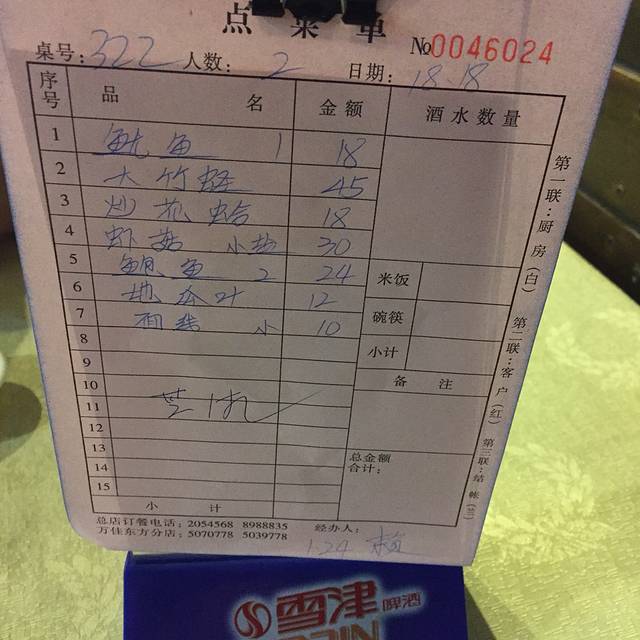 点菜单
No0046024
桌号：322 人数：2 日期：18.18
序号 品名 金额 酒水数量
1 鱿鱼 1 18
2 大竹蛏 45
3 炒花蛤 18
4 虾菇 小盐 30
5 鲍鱼 2 24
6 地瓜叶 12
7 面线 小 10
8
9
10
11
12
13
14
15
小计
米饭
碗筷
小计
备注
总金额
合计：
第一联：厨房（白） 第二联：客户（红） 第三联：结帐（兰）
总店订餐电话：2054568 8988835 经办人：
万佳东方分店：5070778 5039778
124
雪津啤酒